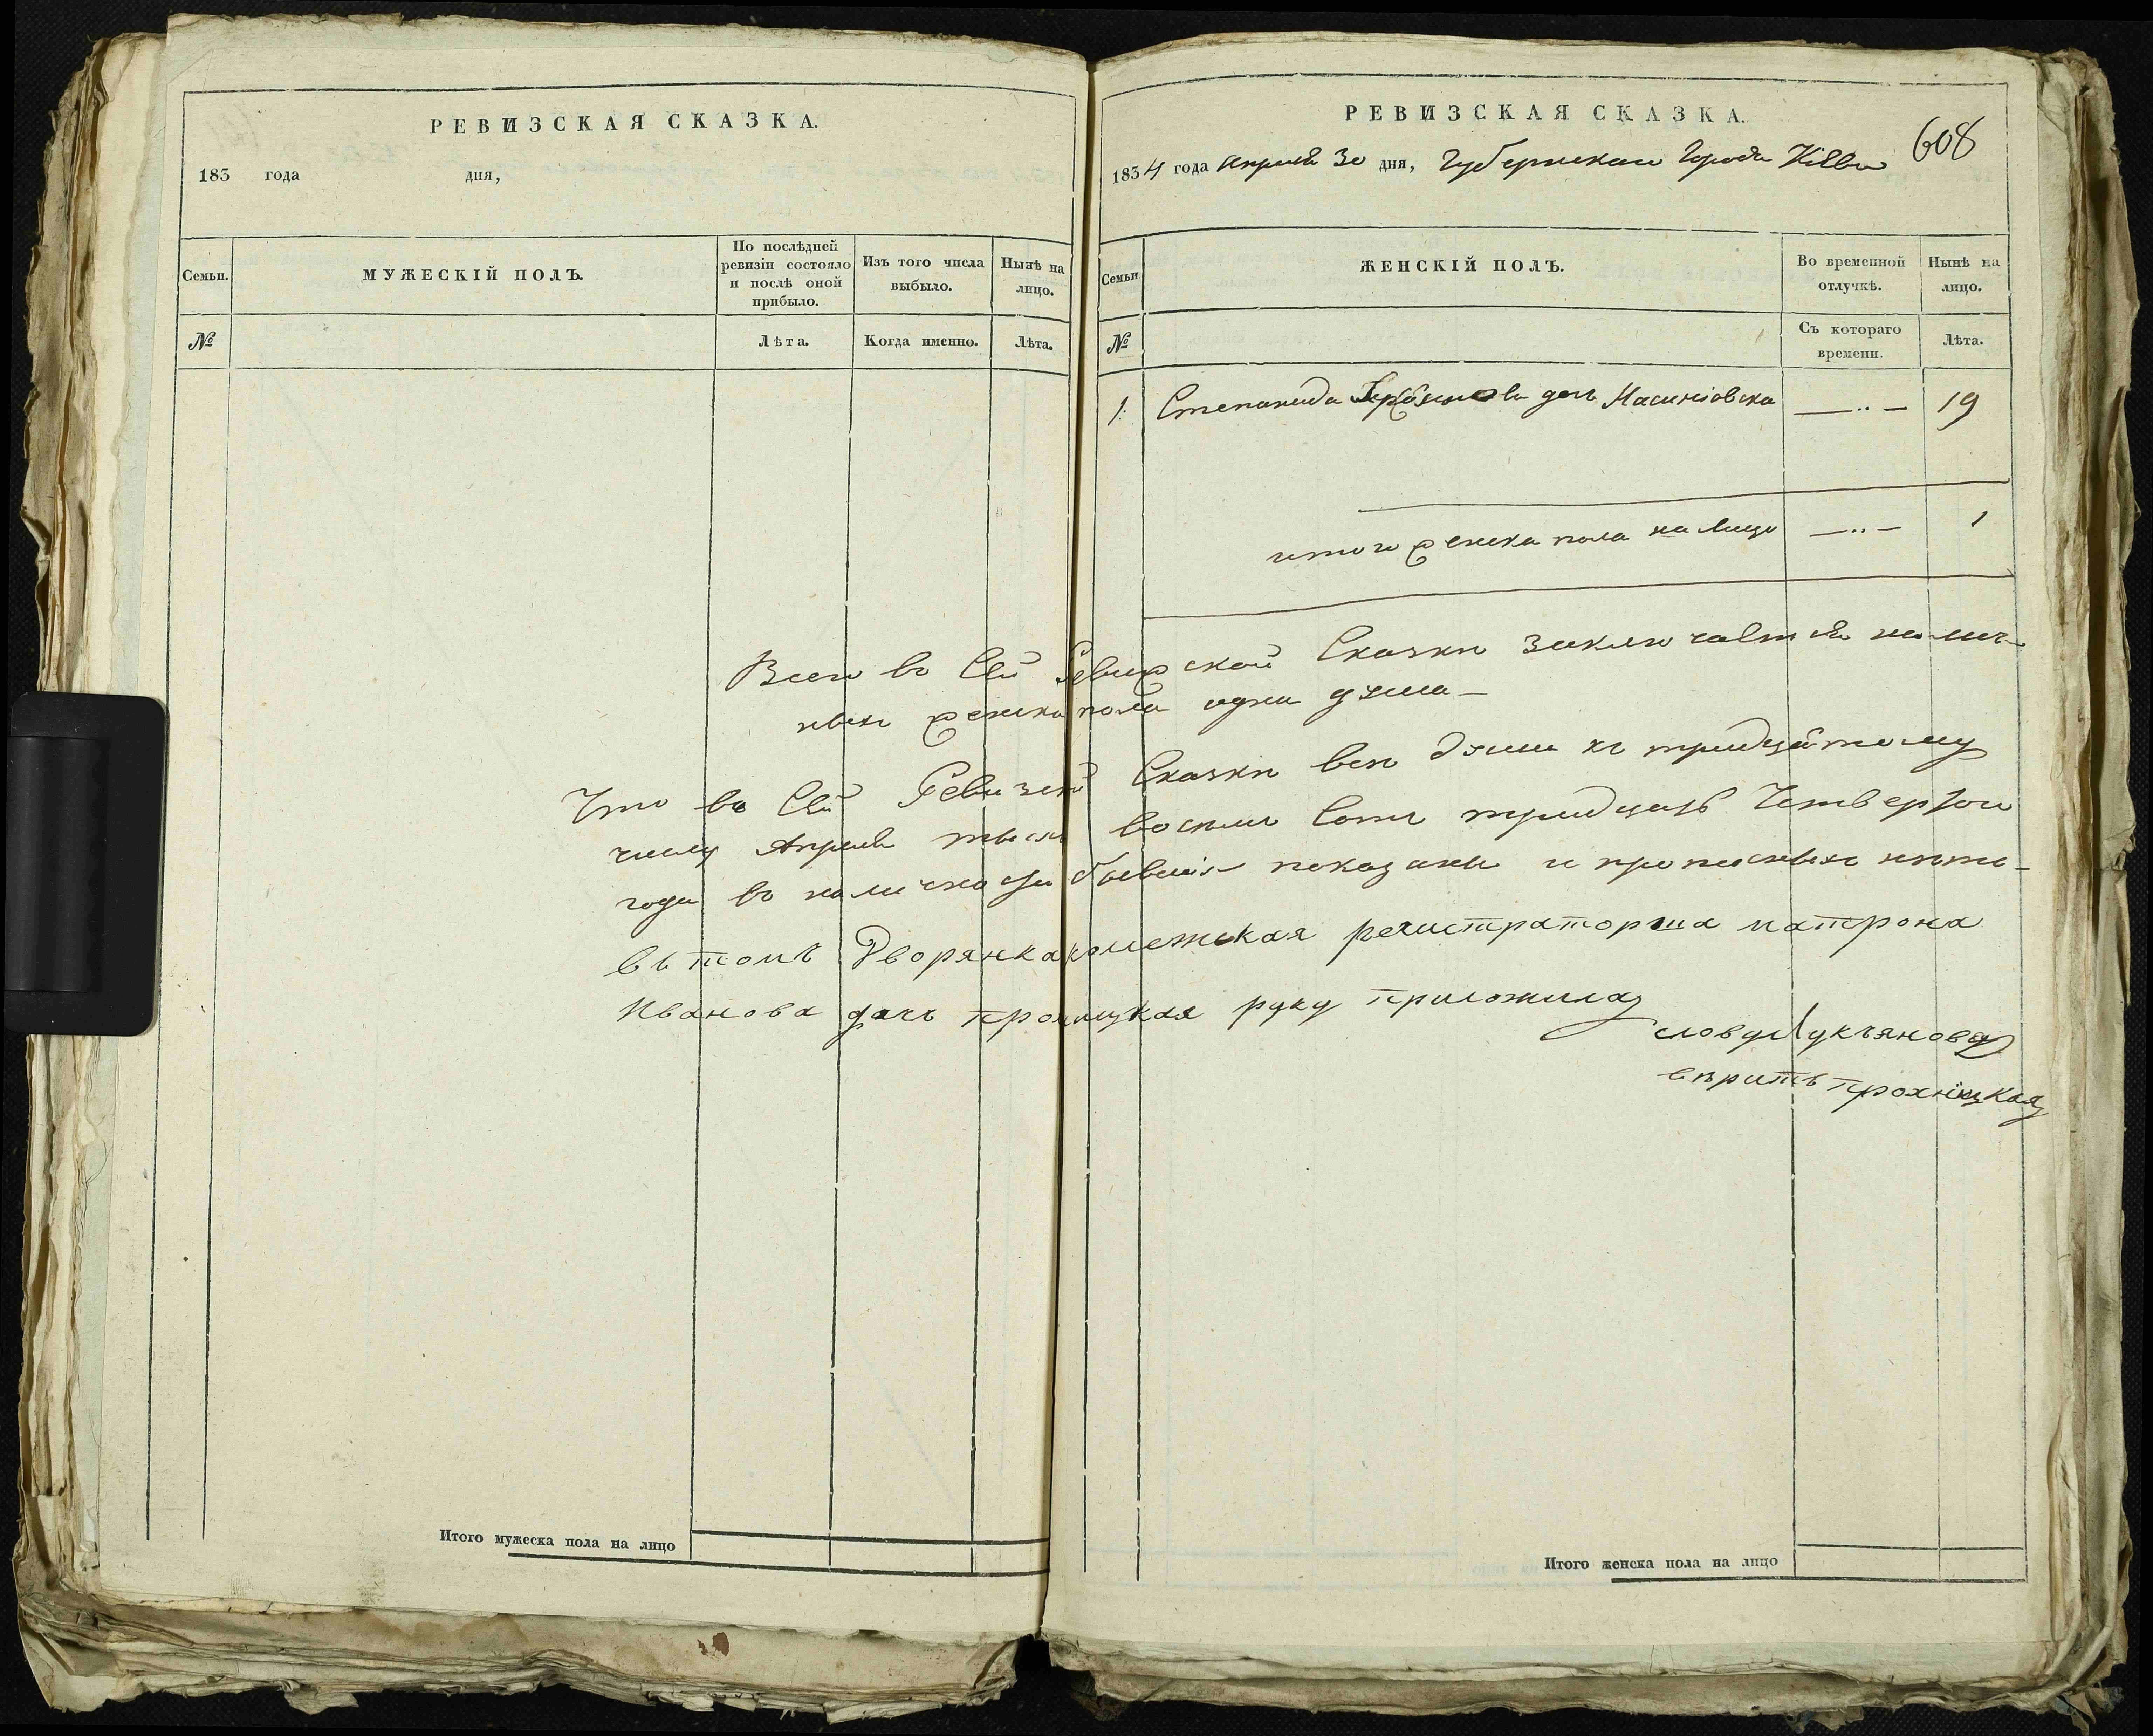 РЕВИЗСКАЯ СКАЗКА.
183 года дня,
Семьи.
МУЖЕСКІЙ ПОЛЪ.
По послѣдней ревизіи состояло и послѣ оной прибыло.
Изъ того числа выбыло.
Нынѣ на лицо.
№
Лѣта.
Когда именно.
Лѣта.
Итого мужеска пола на лицо
РЕВИЗСКАЯ СКАЗКА.
608
1834 года Апреля 30 дня, Губернскаго Города Кіева
Семьи
ЖЕНСКІЙ ПОЛЪ.
Во временной отлучкѣ.
Нынѣ на лицо.
№
Съ котораго времени.
Лѣта.
1. Степанида дочь — 19
итого женска пола на лицо — 1
Всего во Сей Ревизской Сказки заключается налич-
ныхъ женска пола одна душа —
Что во Сей Ревизской Сказки все души къ тридцатому
числу Апреля тысяч восемь Сотъ тридцать Четвертого
года во наличности бывшія показаны и прописныхъ нѣту —
въ томъ Дворянка колежская регистраторша матрона
Иванова дочь прохницкая руку приложила
слову Лукьянова
верить прохницкая
Итого женска пола на лицо